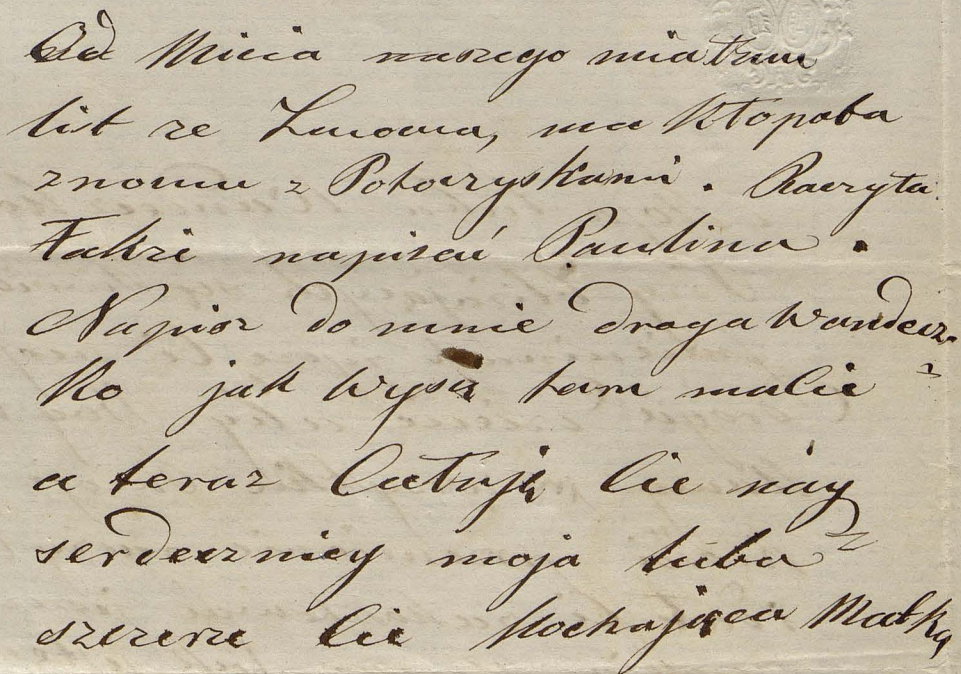 Od Micia naszego miałam
list ze Lwowa, ma kłopota
znowu z Potoczyskami. Raczyła
także napisać Paulina.
Napisz do mnie droga Wandecz-
ko jak wysą tam malie
a teraz całuję Cie nay
serdeczniey moja luba
szczerze Cie kochająca Matka